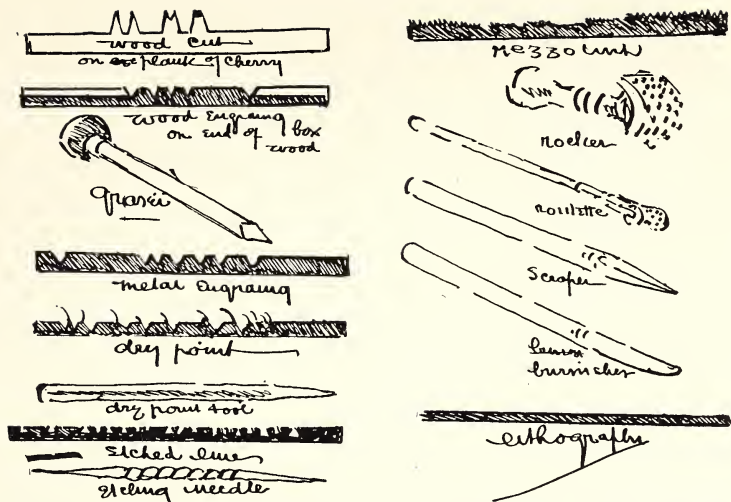 wood cut
on plank of cherry
wood Engraving
on End of box
wood
graver
metal Engraving
dry point
dry point tool
Etched line
Etching needle
mezzotint
rocker
roulette
Scraper
burnisher
Lithography